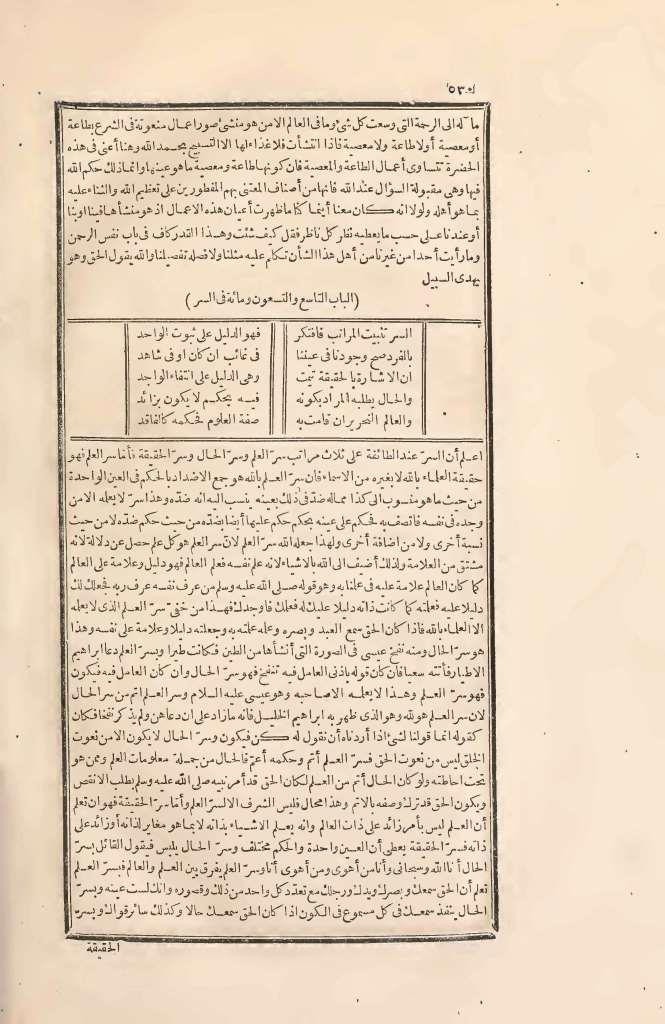 ٥٣٠
مآله الى الرحمة التى وسعت كل شئ وما فى العالم الا من هو منشئ صور أعمال منعوتة فى الشرع بطاعة
أو معصية أولا طاعة ولا معصية فاذا انتشأت فلا غذاء لها الا التسبيح بحمد الله وهنا أعنى فى هذه
الحضرة تتساوى أعمال الطاعة والمعصية فان كونها طاعة ومعصية ما هو عينها وانما ذلك حكم الله
فيها وهى مقبولة السؤال عند الله فانها من أصناف المعتنى بهم المفطورين على تعظيم الله والثناء عليه
بما هو أهله ولولا انه كان معنا أينما كنا ما ظهرت أعيان هذه الاعمال اذ هو منشأها فينا أو بنا
أو عندنا على حسب ما يعطيه نظر كل ناظر فقل كيف شئت وهذا القدر كاف فى باب نفس الرحمن
وما رأيت أحدا من غيرنا من أهل هذا الشأن تكلم عليه مثلنا ولا فصله تفصيلنا والله يقول الحق وهو
يهدى السبيل
(الباب التاسع والتسعون ومائة فى السر)
السر تثبيت المراتب فافتكر فهو الدليل على ثبوت الواحد
بالفرد صح وجودنا فى عيننا فى غائب ان كان أو فى شاهد
ان الاشارة بالحقيقة تمت وهى الدليل على انتفاء الواجد
والحال يطلبه المراد بكونه فيه يحكم لا يكون بزائد
والعالم النحرير ان قامت به صفة العلوم فحكمه كالفاقد
اعلم أن السر عند الطائفة على ثلاث مراتب سر العلم وسر الحال وسر الحقيقة فأما سر العلم فهو
حقيقة العلماء بالله لا بغيره من الاسماء فان سر العلم بالله هو جمع الاضداد بالحكم فى العين الواحدة
من حيث ما هو منسوب الى كذا مما له ضد فى ذلك بعينه ينسب اليه انه ضده وهذا سر لا يعلمه الا من
وجده فى نفسه فاتصف به فحكم على عينه بحكم حكم عليها أيضا بضده من حيث حكم ضده لا من حيث
نسبة أخرى ولا من اضافة أخرى ولهذا جعله الله سر العلم لان سر العلم هو كل علم حصل عن دلالة لانه
مشتق من العلامة ولذلك أضيف الى الله بالاشياء لانه علم نفسه فعلم العالم فهو دليل وعلامة على العالم
كما كان العالم علامة عليه فى علمنا به وهو قوله صلى الله عليه وسلم من عرف نفسه عرف ربه فجعلك لك
دليلا عليه فعلمته كما كانت ذاته دليلا عليك له فعلمك فأوجدك فهذا من خفى سر العلم الذى لا يعلمه
الا العلماء بالله فاذا كان الحق سمع العبد وبصره وعلمه علمته به وجعلته دليلا وعلامة على نفسه وهذا
هو سر الحال ومنه نفخ عيسى فى الصورة التى أنشأها من الطين فكانت طيرا وبسر العلم دعا ابراهيم
الاطيار فأتته سعيا فان كان قوله باذنى العامل فيه تنفخ فهو سر الحال وان كان العامل فيه فيكون
فهو سر العلم وهذا لا يعلمه الا صاحبه وهو عيسى عليه السلام وسر العلم أتم من سر الحال
لان سر العلم هو لله وهو الذى ظهر به ابراهيم الخليل فانه ما زاد على ان دعاهن ولم يذكر نفخا فكان
كقوله انما قولنا لشئ اذا أردناه أن نقول له كن فيكون وسر الحال لا يكون الا من نعوت
الخلق ليس من نعوت الحق فسر العلم أتم وحكمه أعم فالحال من جملة معلومات العلم وممن هو
تحت احاطته ولو كان الحال أتم من العلم لكان الحق قد أمر نبيه صلى الله عليه وسلم بطلب الانقص
ويكون الحق قد ترك وصفه بالاتم وهذا محال فليس الشرف الا لسر العلم وأما سر الحقيقة فهو ان تعلم
أن العلم ليس بأمر زائد على ذات العالم وانه يعلم الاشياء بذاته لا بما هو مغاير لذاته أو زائد على
ذاته فسر الحقيقة يعطى أن العين واحدة والحكم مختلف وسر الحال يلبس فيقول القائل بسر
الحال أنا الله وسبحانى وأنا من أهوى ومن أهوى أنا وسر العلم يفرق بين العلم والعالم فبسر العلم
تعلم أن الحق سمعك وبصرك ويدك ورجلك مع تعدد كل واحد من ذلك وقصوره وانك لست عينه وبسر
الحال ينفذ سمعك فى كل مسموع فى الكون اذا كان الحق سمعك حالا وكذلك سائر قواك وبسر
الحقيقة